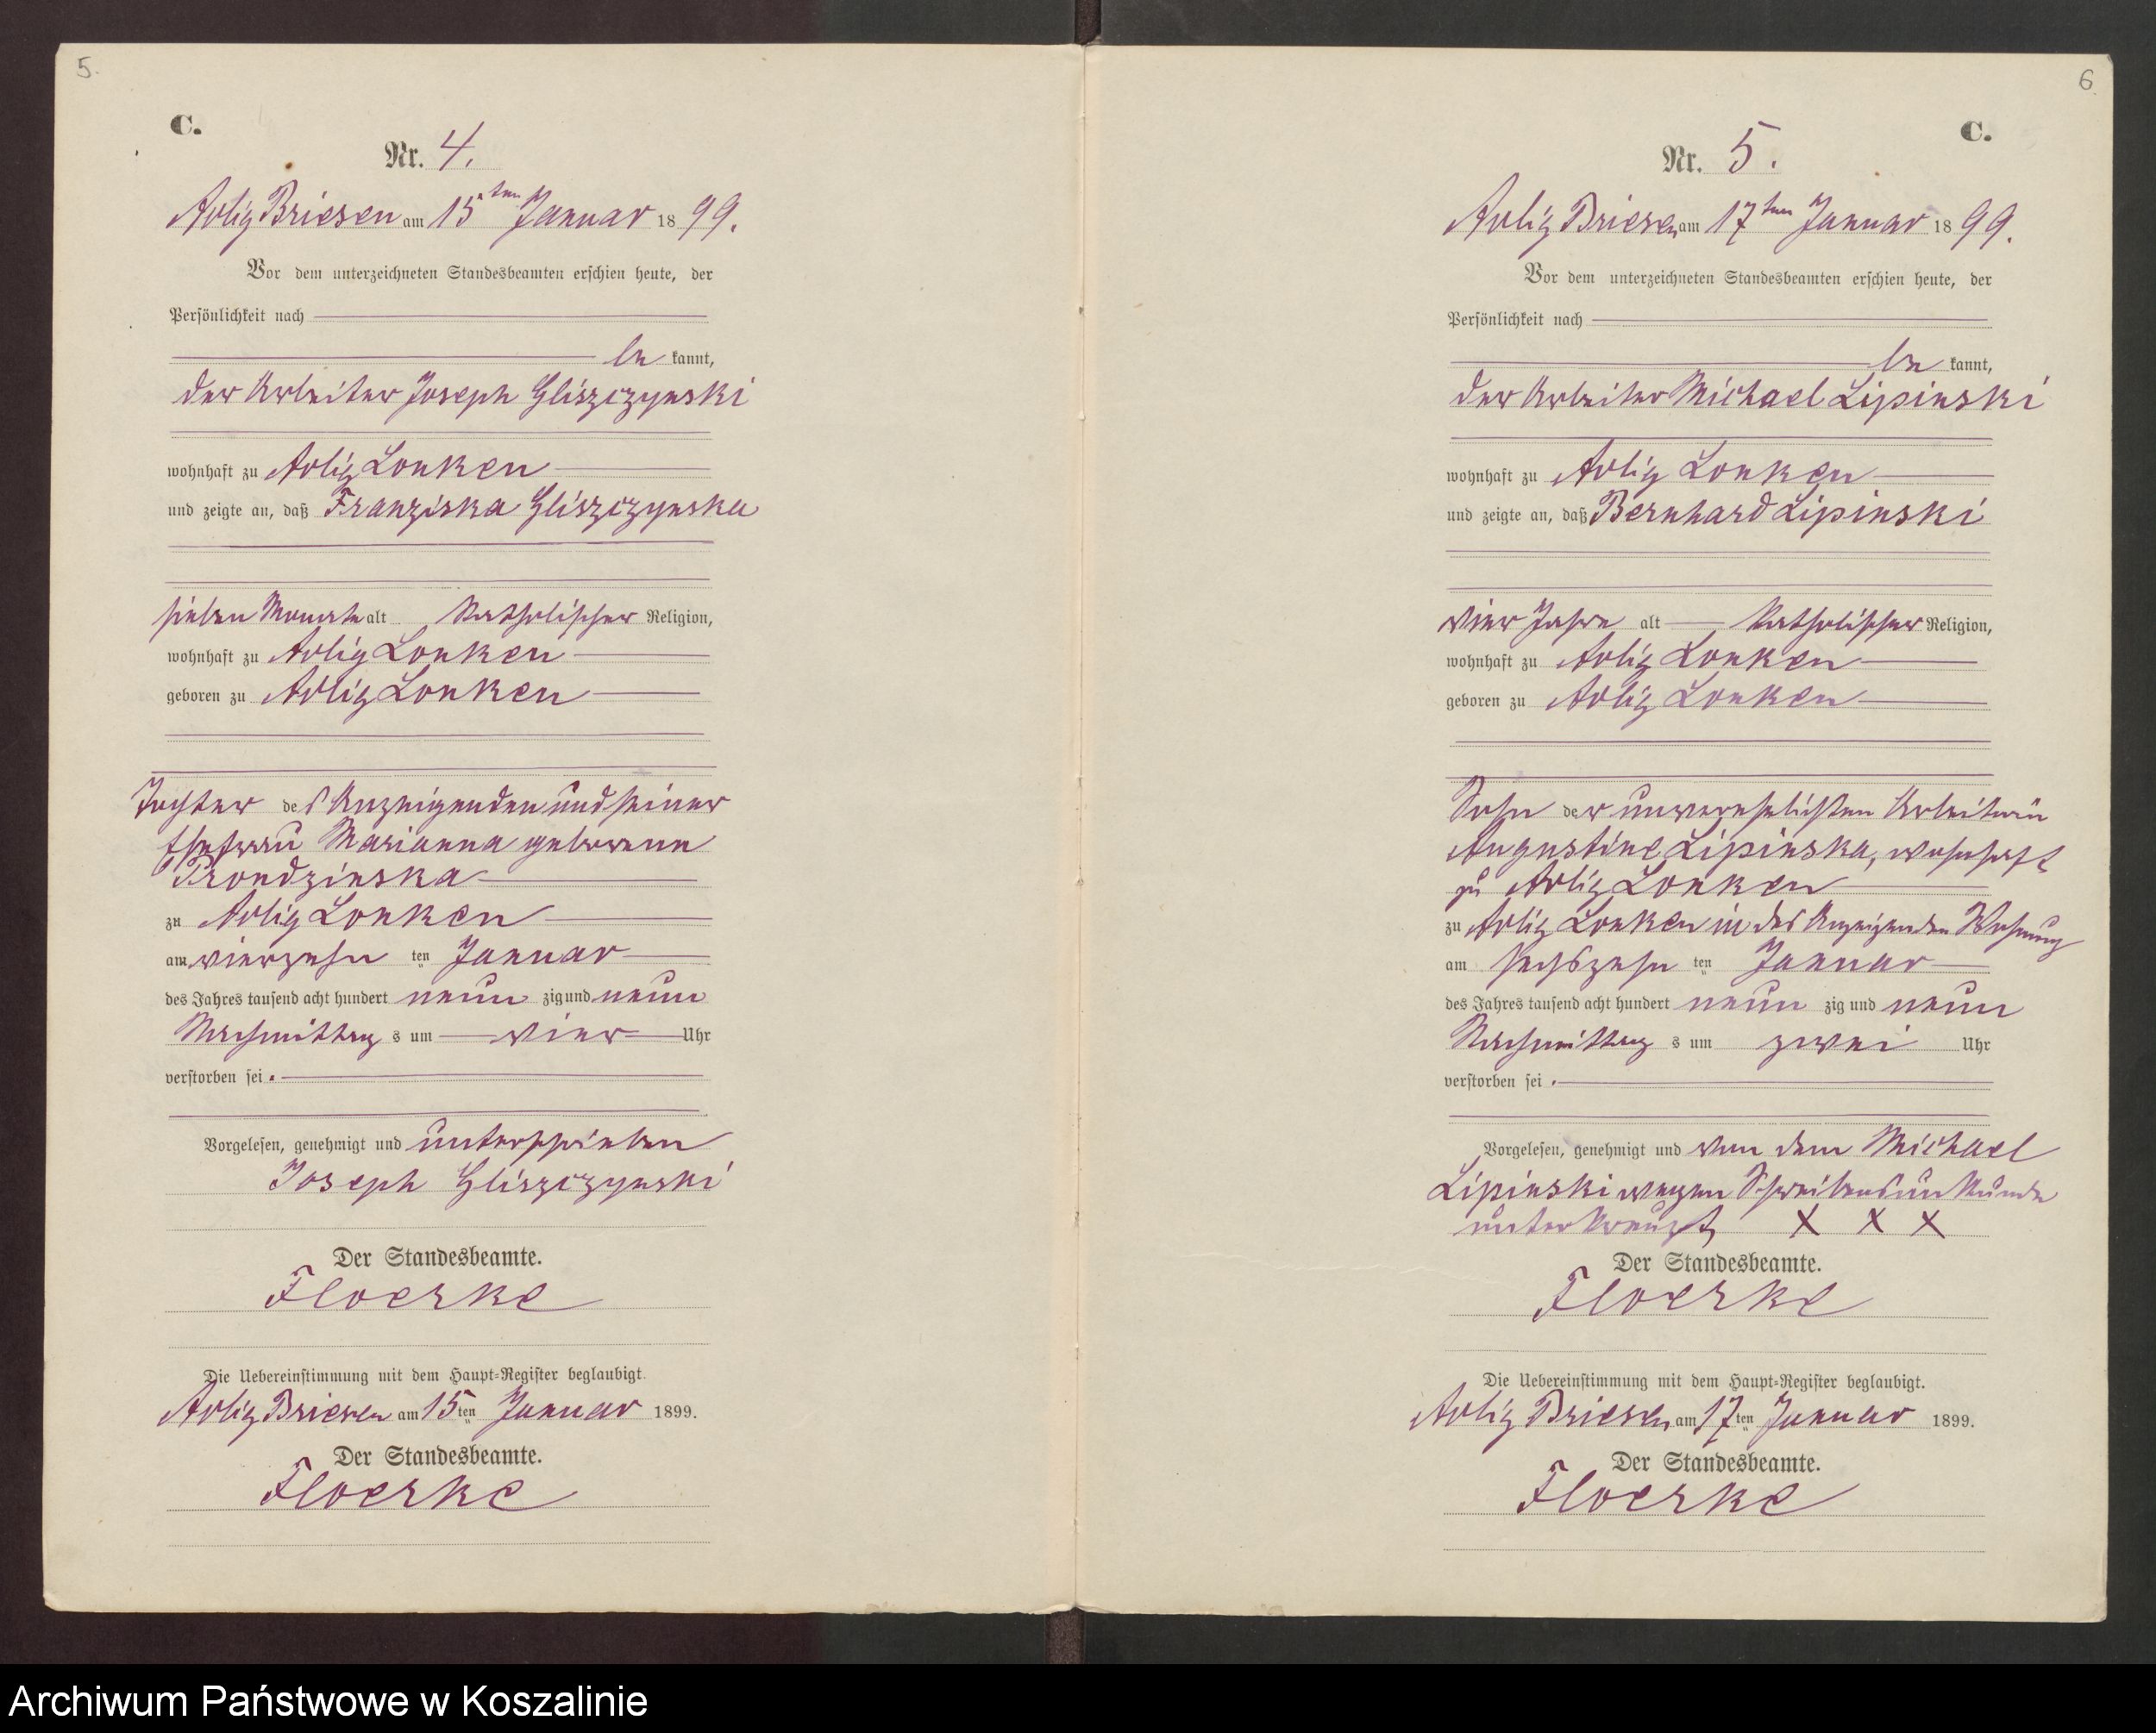 5.
C.
Nr. 4.
Adlig Briesen am 15ten Januar 1899.
Vor dem unterzeichneten Standesbeamten erschien heute, der
Persönlichkeit nach
bekannt,
der Arbeiter Joseph Gliszczynski
wohnhaft zu Adlig Lonken
und zeigte an, daß Franziska Gliszczynska
sieben Monate alt katholischer Religion,
wohnhaft zu Adlig Lonken
geboren zu Adlig Lonken
Tochter des Anzeigenden und seiner
Ehefrau Marianna geborenen
Prondzinska
zu Adlig Lonken
am vierzehn ten Januar
des Jahres tausend acht hundert neun zig und neun
Nachmittags um vier Uhr
verstorben sei.
Vorgelesen, genehmigt und unterschrieben
Joseph Gliszczynski
Der Standesbeamte.
Floerke
Die Uebereinstimmung mit dem Haupt-Register beglaubigt.
Adlig Briesen am 15ten Januar 1899.
Der Standesbeamte.
Floerke
6.
C.
Nr. 5.
Adlig Briesen am 17ten Januar 1899.
Vor dem unterzeichneten Standesbeamten erschien heute, der
Persönlichkeit nach
bekannt,
der Arbeiter Michael Lipinski
wohnhaft zu Adlig Lonken
und zeigte an, daß Bernhard Lipinski
vier Jahre alt katholischer Religion,
wohnhaft zu Adlig Lonken
geboren zu Adlig Lonken
Sohn der unverehelichten Arbeiterin
Augustine Lipinska, wohnhaft
zu Adlig Lonken
zu Adlig Lonken in des Anzeigenden Wohnung
am sechszehn ten Januar
des Jahres tausend acht hundert neun zig und neun
Nachmittags um zwei Uhr
verstorben sei.
Vorgelesen, genehmigt und von dem Michael
Lipinski wegen Schreibensunkunde
unterkreuzt X X X
Der Standesbeamte.
Floerke
Die Uebereinstimmung mit dem Haupt-Register beglaubigt.
Adlig Briesen am 17ten Januar 1899.
Der Standesbeamte.
Floerke
Archiwum Państwowe w Koszalinie